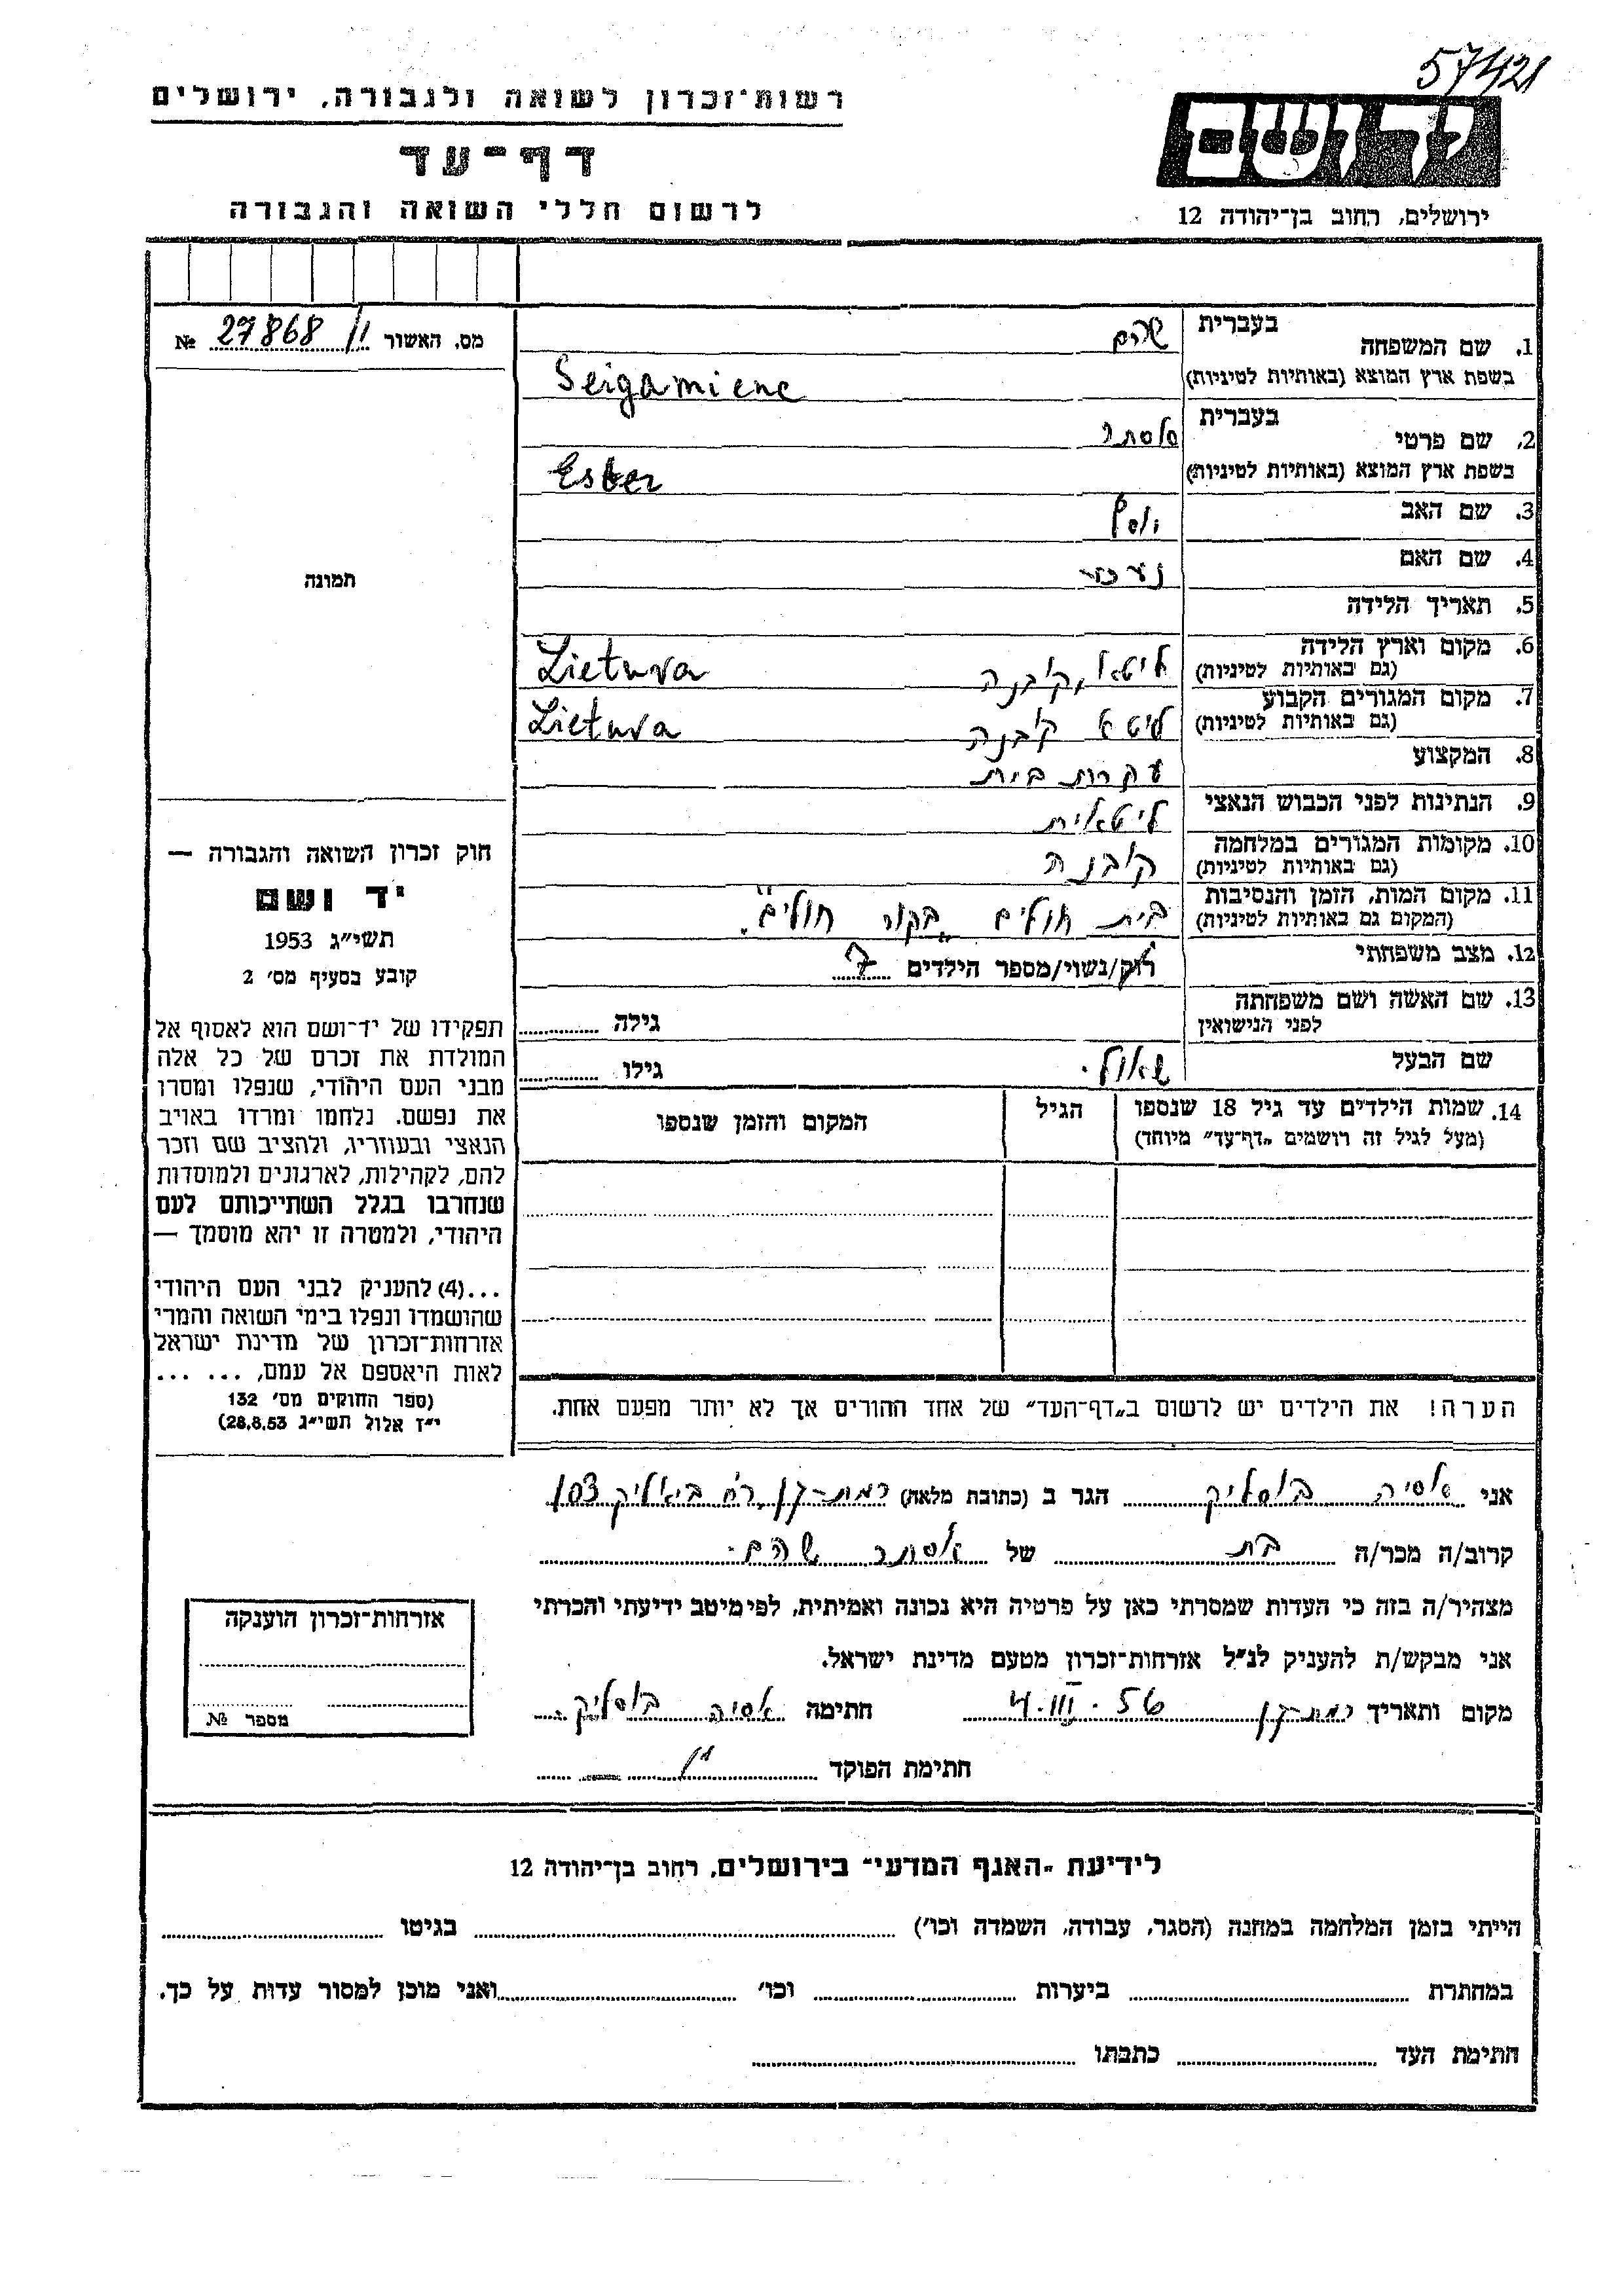 57421
רשות־זכרון לשואה ולגבורה, ירושלים
ידושם
דף־עד
לרשום חללי השואה והגבורה
ירושלים, רחוב בן־יהודה 12
מס. האשור 27868 №
1. שם המשפחה בעברית שהם
בשפת ארץ המוצא (באותיות לטיניות) Seigamiene
2. שם פרטי בעברית אסתר
בשפת ארץ המוצא (באותיות לטיניות) Ester
3. שם האב יוסף
4. שם האם
5. תאריך הלידה
6. מקום וארץ הלידה ליטא, קובנה Lietuva
(גם באותיות לטיניות)
7. מקום המגורים הקבוע ליטא קובנה Lietuva
(גם באותיות לטיניות)
8. המקצוע עקרת בית
9. הנתינות לפני הכבוש הנאצי ליטאית
10. מקומות המגורים במלחמה קובנה
(גם באותיות לטיניות)
11. מקום המות, הזמן והנסיבות בית חולים „בקור חולים".
(המקום גם באותיות לטיניות)
12. מצב משפחתי רוק/נשוי/מספר הילדים 7
13. שם האשה ושם משפחתה
לפני הנישואין גילה
שם הבעל שאול. גילו
14. שמות הילדים עד גיל 18 שנספו הגיל המקום והזמן שנספו
(מעל לגיל זה רושמים „דף־עד" מיוחד)
הערה! את הילדים יש לרשום ב„דף־העד" של אחד ההורים אך לא יותר מפעם אחת.
תמונה
חוק זכרון השואה והגבורה —
יד ושם
תשי"ג 1953
קובע בסעיף מס׳ 2
תפקידו של יד־ושם הוא לאסוף אל
המולדת את זכרם של כל אלה
מבני העם היהודי, שנפלו ומסרו
את נפשם. נלחמו ומרדו באויב
הנאצי ובעוזריו, ולהציב שם וזכר
להם, לקהילות, לארגונים ולמוסדות
שנחרבו בגלל השתייכותם לעם
היהודי, ולמטרה זו יהא מוסמך —
...(4) להעניק לבני העם היהודי
שהושמדו ונפלו בימי השואה והמרי
אזרחות־זכרון של מדינת ישראל
לאות היאספם אל עמם, ... ...
(ספר החוקים מס׳ 132
י"ז אלול תשי"ג 28.8.53)
אני אסיה בוסליק הגר ב (כתובת מלאה) רמת־גן, רח׳ ביאליק 103
קרוב/ה מכר/ה בת של אסתר שהם.
מצהיר/ה בזה כי העדות שמסרתי כאן על פרטיה היא נכונה ואמיתית, לפי מיטב ידיעתי והכרתי
אני מבקש/ת להעניק לנ"ל אזרחות־זכרון מטעם מדינת ישראל.
מקום ותאריך רמת־גן 4.III.56 חתימה אסיה בוסליק.
חתימת הפוקד
אזרחות־זכרון הוענקה
מספר №
לידיעת „האגף המדעי" בירושלים, רחוב בן־יהודה 12
הייתי בזמן המלחמה במחנה (הסגר, עבודה, השמדה וכו׳) בגיטו
במחתרת ביערות וכו׳ ואני מוכן למסור עדות על כך.
חתימת העד כתבתו